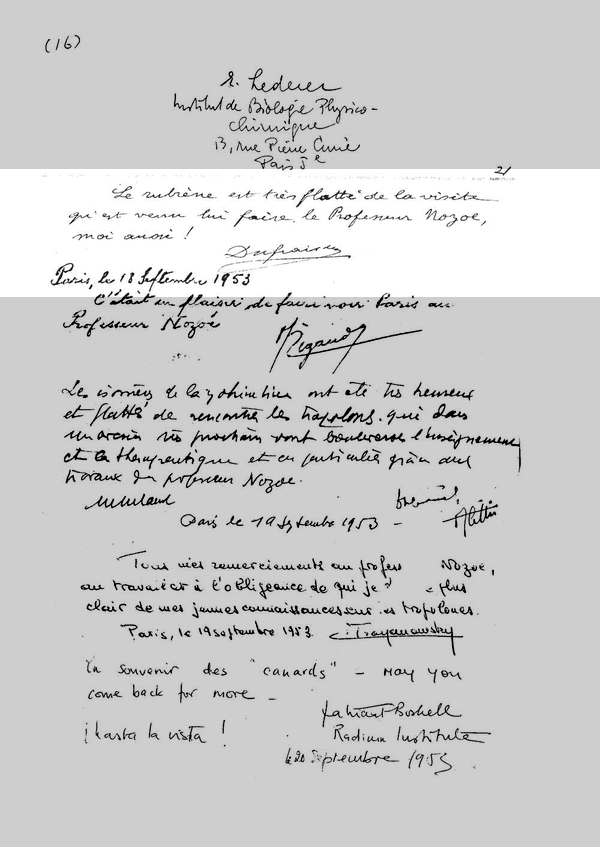 (16)
E. Lederer
Institut de Biologie Physico-
chimique
13, rue Pierre Curie
Paris 5e
21
Le rubrène est très flatté de la visite
qu'est venu lui faire le Professeur Nozoe,
moi aussi !
Dufraisse
Paris, le 18 Septembre 1953
C'était un plaisir de faire voir Paris au
Professeur Nozoé
Rigaudy
Les isomères de la yohimbine ont été très heureux
et flattés de rencontrer les tropolons qui dans
un avenir très prochain vont bouleverser l'enseignement
et la thérapeutique et en particulier grâce aux
travaux du professeur Nozoe.
Paris le 19 Septembre 1953 -
Tous mes remerciements au profess Nozoe,
au travail et à l'obligeance de qui je plus
clair de mes jeunes connaissances sur es tropolones.
Paris, le 19 septembre 1953. Troyanowsky
En souvenir des "canards" - May you
come back for more -
¡hasta la vista !
Radium Institute
le 20 Septembre 1953